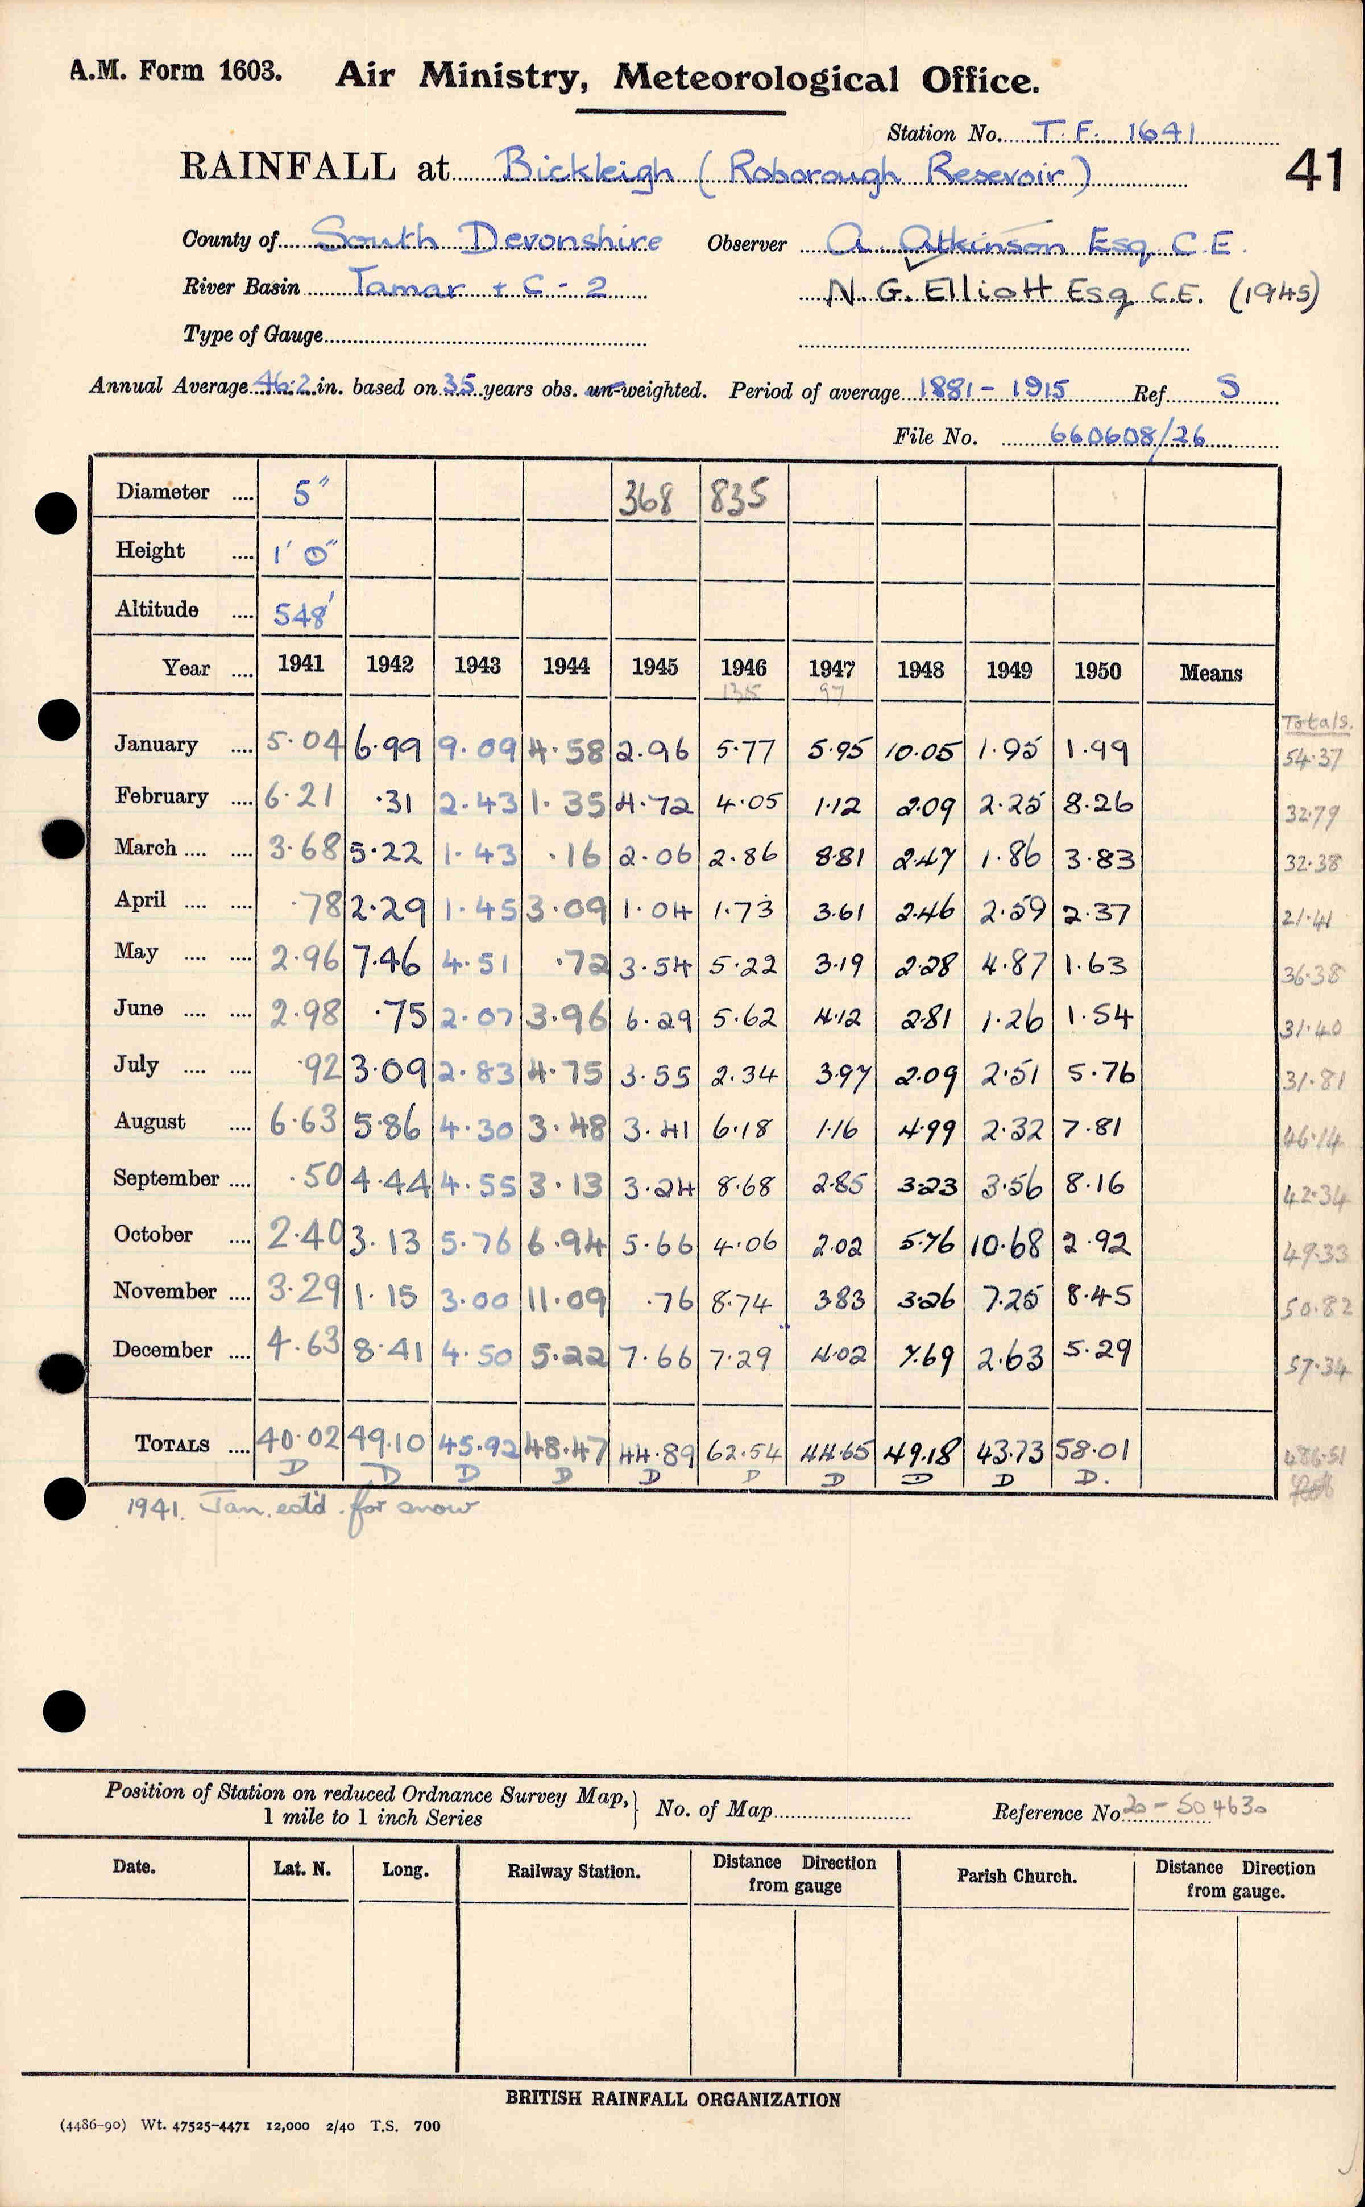 A.M. Form 1603. Air Ministry, Meteorological Office.
Station No. T.F. 1641
41
RAINFALL at Bickleigh (Roborough Resevoir)
County of South Devonshire Observer A. Atkinson Esq C.E.
River Basin Tamar + C - 2 N. G. Elliott Esq C.E. (1945)
Type of Gauge
Annual Average 46.2 in. based on 35 years obs. un-weighted. Period of average 1881 - 1915 Ref S
File No. 660608/26
Diameter .... 5" 368 835
Height .... 1' 0"
Altitude .... 548'
Year .... 1941 1942 1943 1944 1945 1946 1947 1948 1949 1950 Means
97
Totals.
January .... 5.04 6.99 9.09 4.58 2.96 5.77 5.95 10.05 1.95 1.99 54.37
February .... 6.21 .31 2.43 1.35 4.72 4.05 1.12 2.09 2.25 8.26 32.79
March .... .... 3.68 5.22 1.43 .16 2.06 2.86 8.81 2.47 1.86 3.83 32.38
April .... .... .78 2.29 1.45 3.09 1.04 1.73 3.61 2.46 2.59 2.37 21.41
May .... .... 2.96 7.46 4.51 .72 3.54 5.22 3.19 2.28 4.87 1.63 36.38
June .... .... 2.98 .75 2.07 3.96 6.29 5.62 4.12 2.81 1.26 1.54 31.40
July .... .... .92 3.09 2.83 4.75 3.55 2.34 3.97 2.09 2.51 5.76 31.81
August .... 6.63 5.86 4.30 3.48 3.41 6.18 1.16 4.99 2.32 7.81 46.14
September .... .50 4.44 4.55 3.13 3.24 8.68 2.85 3.23 3.56 8.16 42.34
October .... 2.40 3.13 5.76 6.94 5.66 4.06 2.02 5.76 10.68 2.92 49.33
November .... 3.29 1.15 3.00 11.09 .76 8.74 3.83 3.26 7.25 8.45 50.82
December .... 4.63 8.41 4.50 5.22 7.66 7.29 4.02 7.69 2.63 5.29 57.34
TOTALS .... 40.02 49.10 45.92 48.47 44.89 62.54 44.65 49.18 43.73 58.01 486.51
D D D D D D D D D D.
1941. Jan. est'd. for snow
Position of Station on reduced Ordnance Survey Map,
1 mile to 1 inch Series
No. of Map Reference No 20 - 504630
Date. Lat. N. Long. Railway Station. Distance Direction from gauge Parish Church. Distance Direction from gauge.
BRITISH RAINFALL ORGANIZATION
(4486-90) Wt. 47525-4471 12,000 2/40 T.S. 700